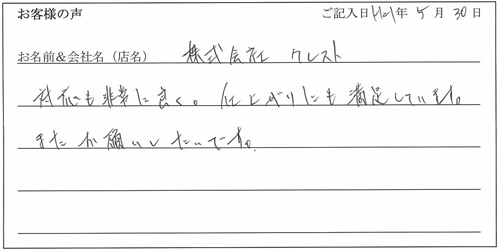 お客様の声 ご記入日H21年5月30日
お名前&会社名(店名) 株式会社 クレスト
対応も非常に良く。仕上がりにも満足しています。
またお願いしたいです。